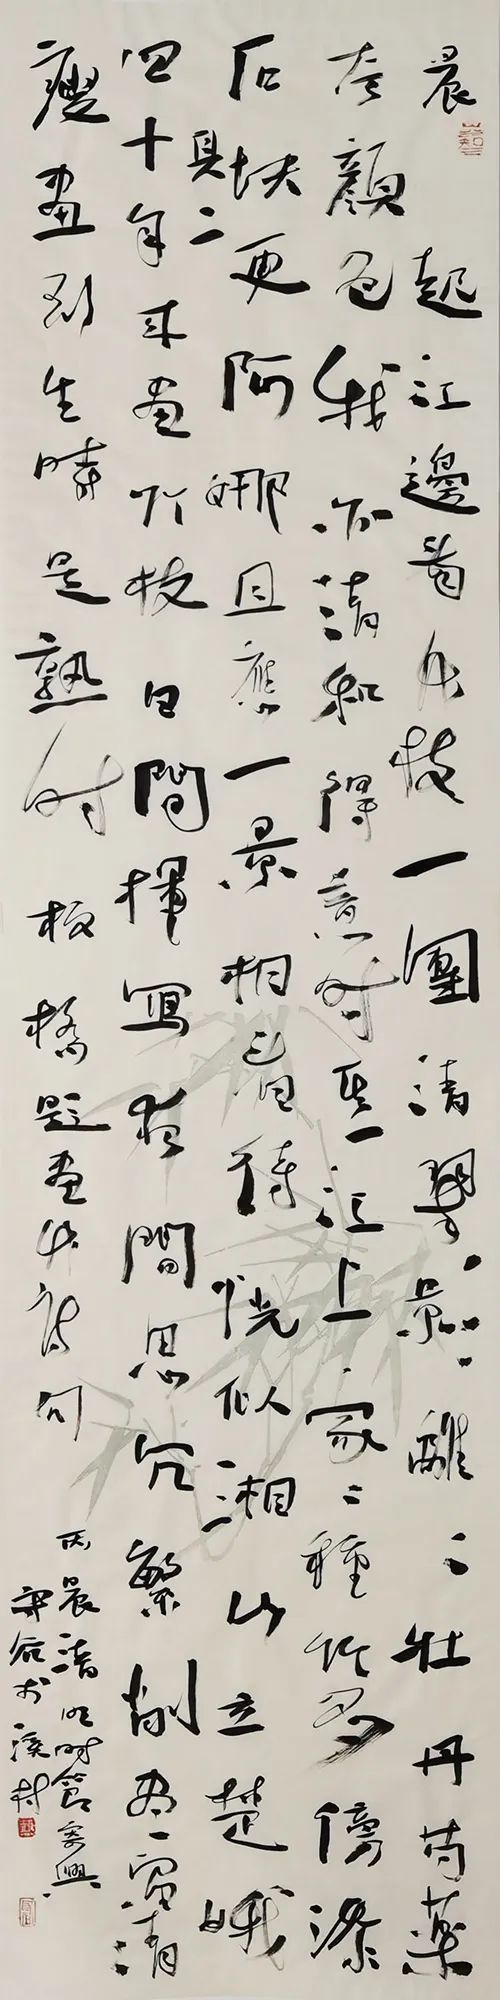 晨起江邊看竹枝一團清翠影離〻牡丹芍藥
夸顔色我亦清和得意時其一江上家〻種竹多傍添
石块更阿娜且應一景相看待恍似湘山立楚娥
其二
四十年來畫竹枝日間揮寫夜間思冗繁削盡留清
瘦畫到生時是熟時 板橋題畫竹詩句
丙晨清明時節寄興
於溪村